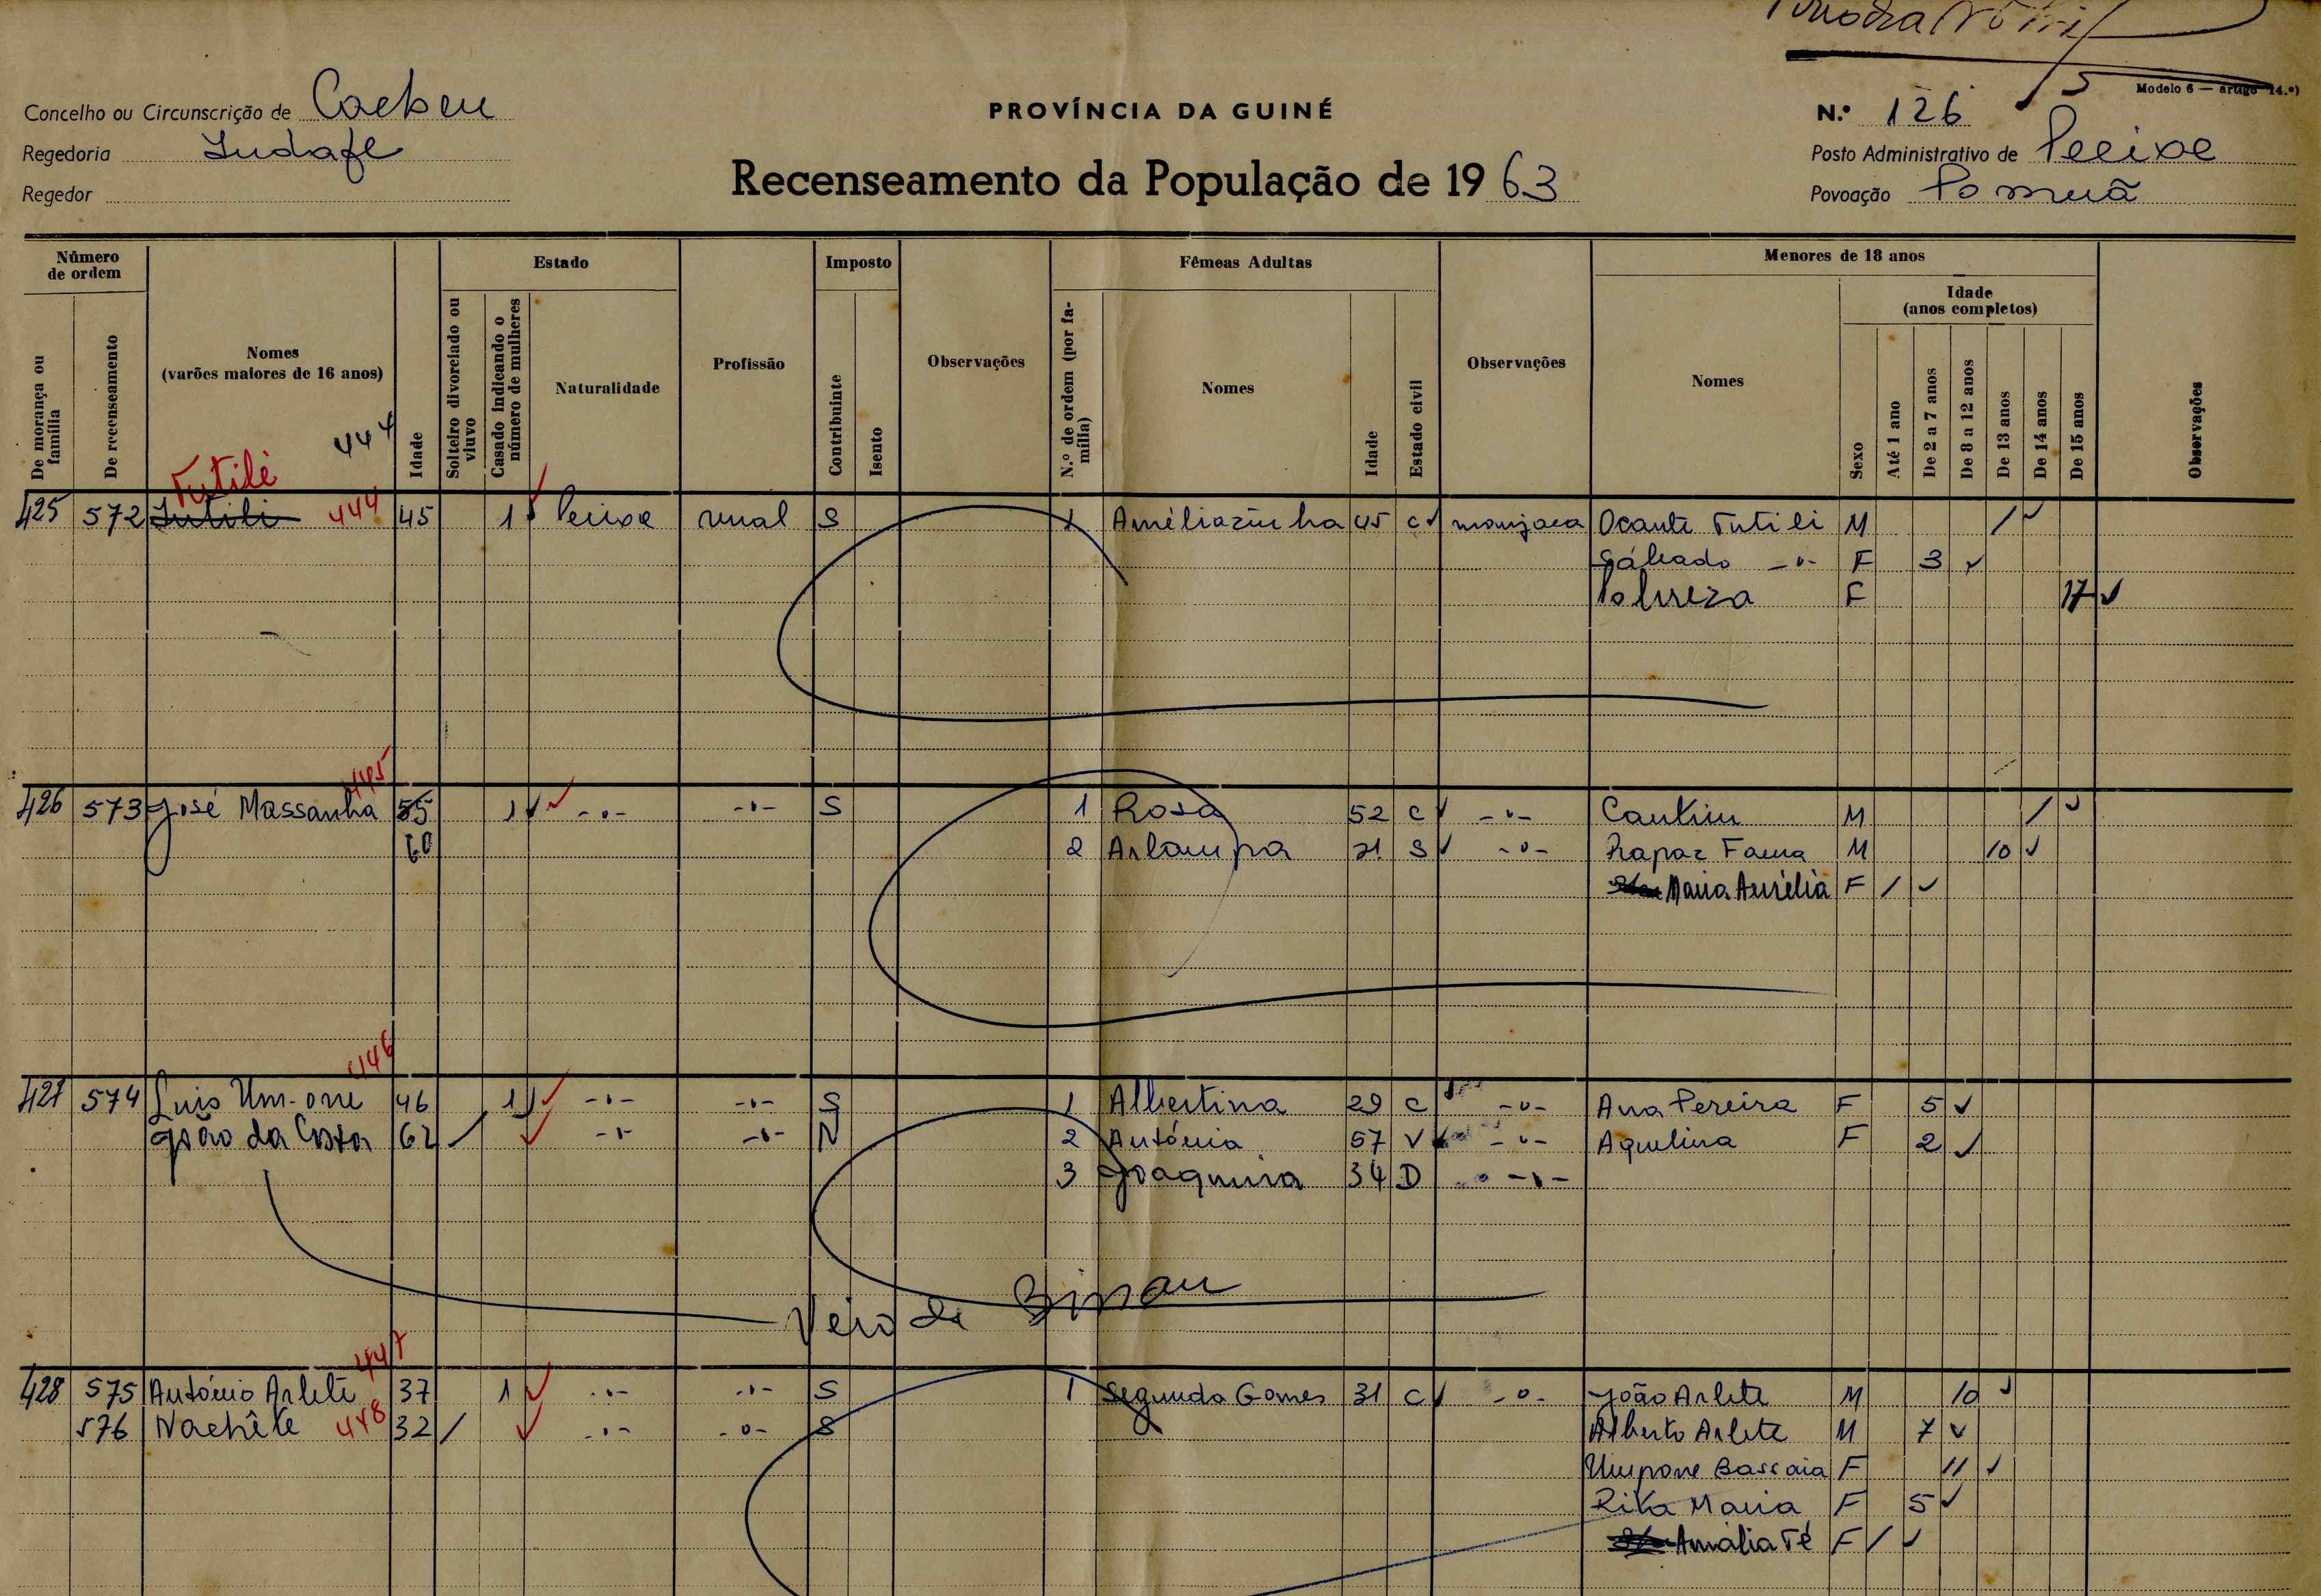 Modelo 6 — artigo 14.º)
Concelho ou Circunscrição de Cacheu
PROVÍNCIA DA GUINÉ
N.º 126
Regedoria
Posto Administrativo de Pecixe
Recenseamento da População de 1963
Regedor
Povoação
Número de ordem
Estado
Imposto
Fêmeas Adultas
Menores de 18 anos
Idade
(anos completos)
De morança ou família
De recenseamento
Nomes
(varões maiores de 16 anos)
Idade
Solteiro divorciado ou viuvo
Casado indicando o número de mulheres
Naturalidade
Profissão
Contribuinte
Isento
Observações
N.º de ordem (por família)
Nomes
Idade
Estado civil
Observações
Nomes
Sexo
Até 1 ano
De 2 a 7 anos
De 8 a 12 anos
De 13 anos
De 14 anos
De 15 anos
Observações
444
Tutilé
425 572 444 45 1 Pecixe rural S 1 Améliazinha 45 C manjaca Ocante Tutili M /
Sábado -"- F 3
Pobreza F 17
445
426 573 José Massanha 55 1 -"- -"- S 1 Rosa 52 C -"- Cantim M /
60 2 Arlampa 21 S -"- Rapaz Fama M 10
Maria Aurélia F /
446
427 574 Luis Um-one 46 1 -"- -"- S 1 Albertina 29 C -"- Ana Pereira F 5
João da Costa 62 / -"- -"- N 2 Antónia 57 V -"- Aquelina F 2
3 Joaquina 34 D -"-
Veio de Bissau
447
428 575 António Arlete 37 1 -"- -"- S 1 Segunda Gomes 31 C -"- João Arlete M 10
576 Nachête 448 32 / -"- -"- S Alberto Arlete M 7
Umpone Bassaia F 11
Rita Maria F 5
Amália Té F /